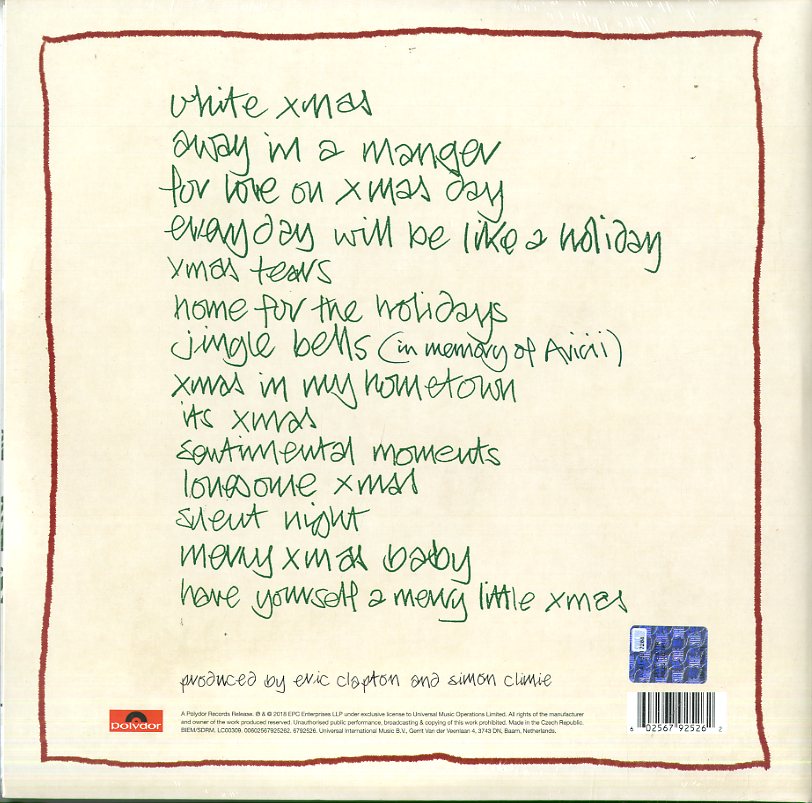 white xmas
away in a manger
for love on xmas day
everyday will be like a holiday
xmas tears
home for the holidays
jingle bells (in memory of Avicii)
xmas in my hometown
its xmas
sentimental moments
lonesome xmas
silent night
merry xmas baby
have yourself a merry little xmas
produced by eric clapton and simon climie
polydor
A Polydor Records Release. ℗ & © 2018 EPC Enterprises LLP under exclusive license to Universal Music Operations Limited. All rights of the manufacturer
and owner of the work produced reserved. Unauthorised public performance, broadcasting & copying of this work prohibited. Made in the Czech Republic.
BIEM/SDRM. LC00309. 00602567925262. 6792526. Universal International Music B.V., Gerrit Van der Veenlaan 4, 3743 DN, Baarn, Netherlands.
6 02567 92526 2